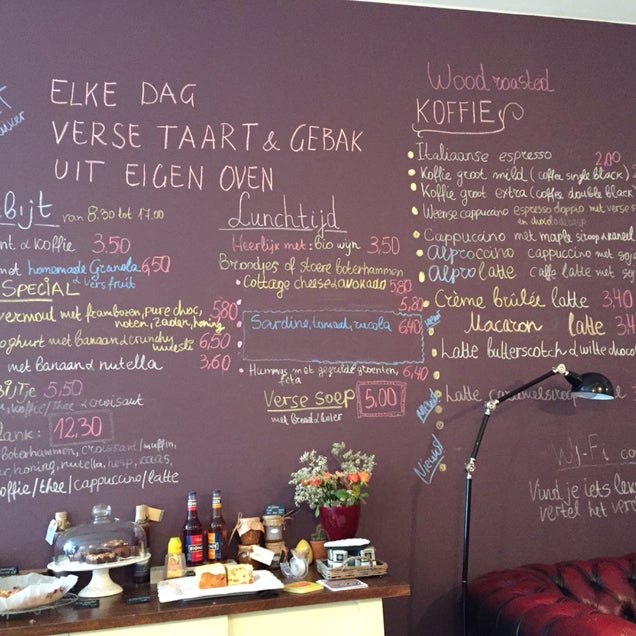 ELKE DAG
VERSE TAART & GEBAK
UIT EIGEN OVEN
van 8.30 tot 17.00
& koffie 3,50
met homemade Granola 6,50
& vers fruit
SPECIAL
met frambozen, pure choc, 5,80
noten, zaden, honing
met banaan & crunchy 6,50
muesli
met banaan & nutella 3,60
5,50
koffie/thee & croissant
12,30
boterhammen, croissant/muffin,
honing, nutella, kaas,
koffie/thee/cappuccino/latte
Lunchtijd
Heerlijk met: bio wijn 3,50
Broodjes of stoere boterhammen
Cottage cheese & avokado 5,80
5,80
Sardine, tomaat, rucola 6,40
Hummus met gegrilde groenten, 6,40
feta
Verse soep 5,00
met brood & boter
Wood roasted
KOFFIE
Italiaanse espresso 2,00
Koffie groot mild (coffee single black)
Koffie groot extra (coffee double black
Weense cappucino espresso doppio met verse
en chocolade
Cappuccino met maple siroop & kaneel
Alproccino cappuccino met soja
Alpro latte caffe latte met
Crème brûlée latte 3,40
Macaron latte 3,4
Latte butterscotch & witte choco
Latte
Nieuw!
Wi-Fi
Vind je iets
vertel het